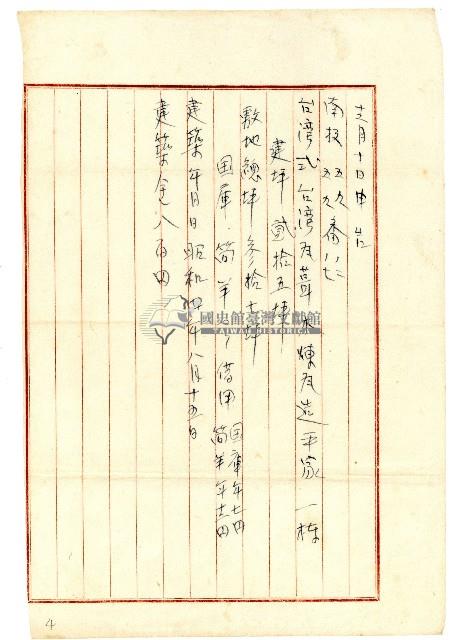 十二月十日申告
南投 五九 番ノ七
台湾式台湾瓦葺煉瓦造平家 一棟
建坪 貳拾五坪
敷地總坪 參拾七坪
国庫 簡羊ノ借用 国庫年七円
簡羊年十二円
建築年月日 昭和四年八月十五日
建築金八百円
國史館臺灣文獻館
TAIWAN HISTORICA
4